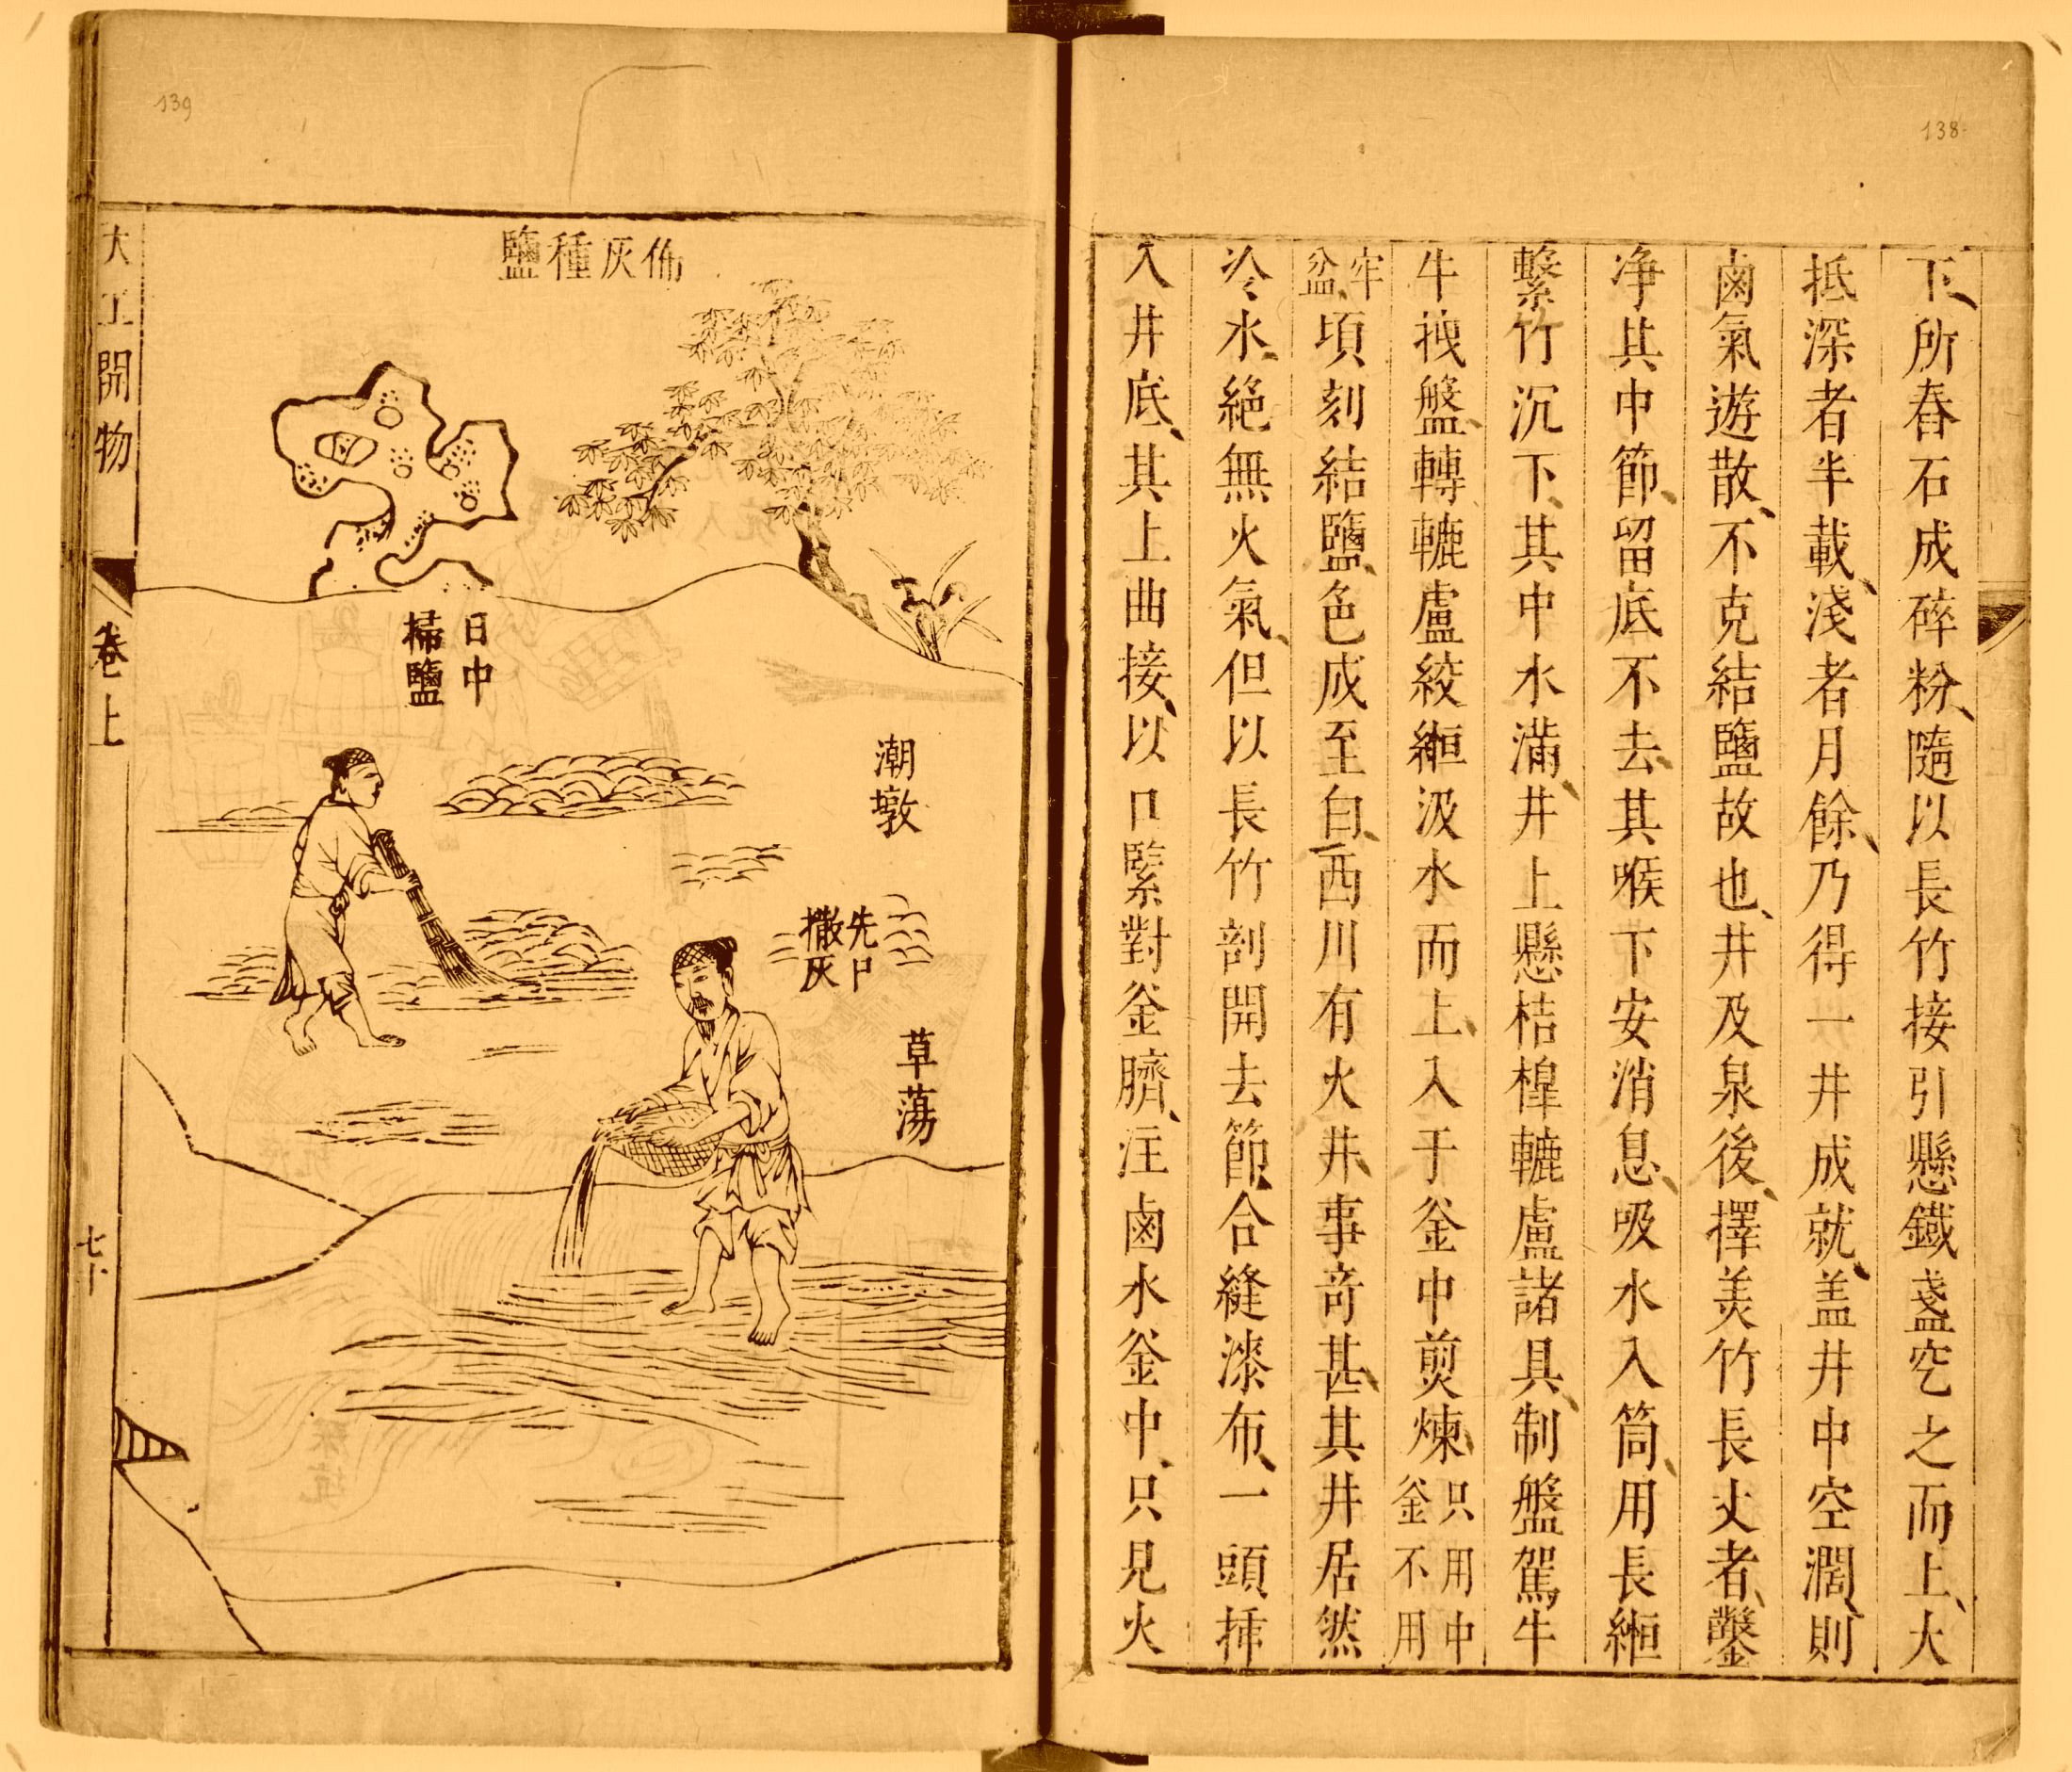 138
下所舂石成碎粉隨以長竹接引懸鐵盞空之而上大
抵深者半載淺者月餘乃得一井成就盖井中空濶則
鹵氣遊散不克結鹽故也井及泉後擇美竹長丈者鑿
净其中節留底不去其喉下安消息吸水入筒用長縆
繫竹沉下其中水滿井上懸桔橰轆轤諸具制盤駕牛
牛拽盤轉轆轤絞縆汲水而上入于釜中煎煉只用中釜不用
牢盆頃刻結鹽色成至白西川有火井事竒甚其井居然
冷水絕無火氣但以長竹剖開去節合縫漆布一頭揷
入井底其上曲接以口緊對釜臍注鹵水釜中只見火
139
佈灰種鹽
日中
掃鹽
潮墩
先日
撒灰
草蕩
天工開物
卷上
七十